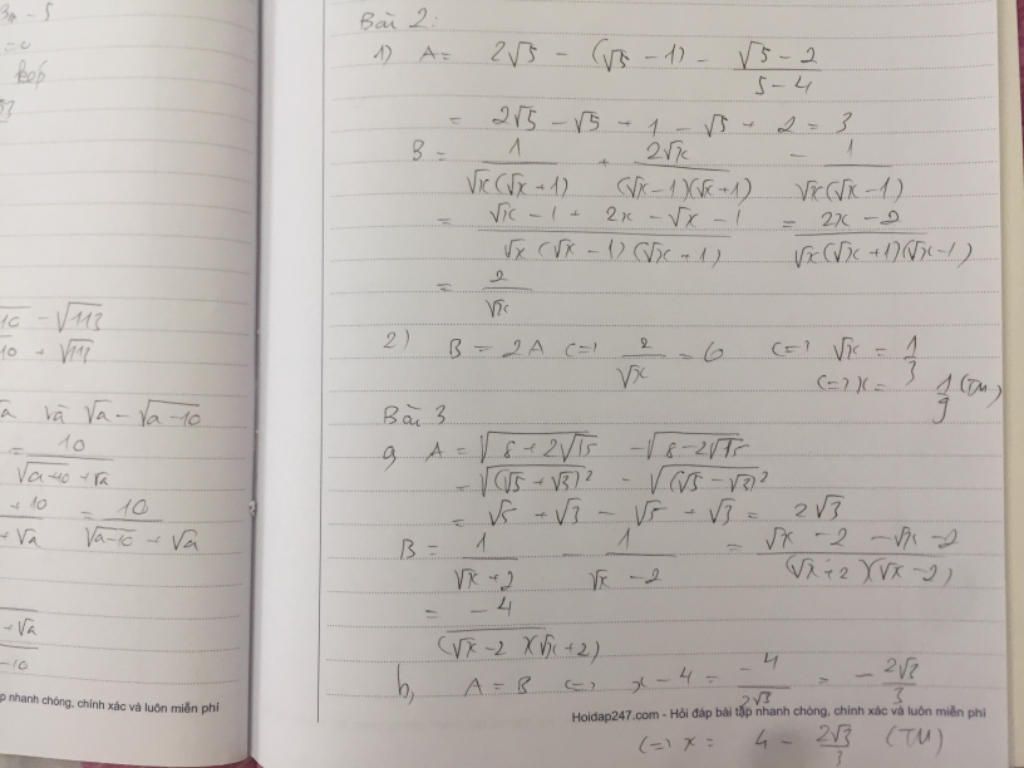 3x - 5
= 0
√10 - √113
10 + √113
√a và √a - √(a-10)
= 10/(√(a+10) + √a)
+ 10 = 10/(√(a-10) + √a)
+ √a
+ √a
-10
p nhanh chóng, chính xác và luôn miễn phí
Bài 2:
1) A = 2√5 - (√5 - 1) - (√5 - 2)/(5 - 4)
= 2√5 - √5 + 1 - √5 + 2 = 3
B = 1/(√x(√x + 1)) + 2√x/((√x - 1)(√x + 1)) - 1/(√x(√x - 1))
= (√x - 1 + 2x - √x - 1)/(√x(√x - 1)(√x + 1)) = (2x - 2)/(√x(√x + 1)(√x - 1))
= 2/√x
2) B = 2A <=> 2/√x = 6 <=> √x = 1/3
<=> x = 1/9 (TM)
Bài 3
a, A = √(8 + 2√15) - √(8 - 2√15)
= √((√5 + √3)²) - √((√5 - √3)²)
= √5 + √3 - √5 + √3 = 2√3
B = 1/(√x + 2) - 1/(√x - 2) = (√x - 2 - √x - 2)/((√x + 2)(√x - 2))
= -4/((√x - 2)(√x + 2))
b, A = B <=> x - 4 = -4/(2√3) = -2√3/3
Hoidap247.com - Hỏi đáp bài tập nhanh chóng, chính xác và luôn miễn phí
<=> x = 4 - 2√3/3 (TM)